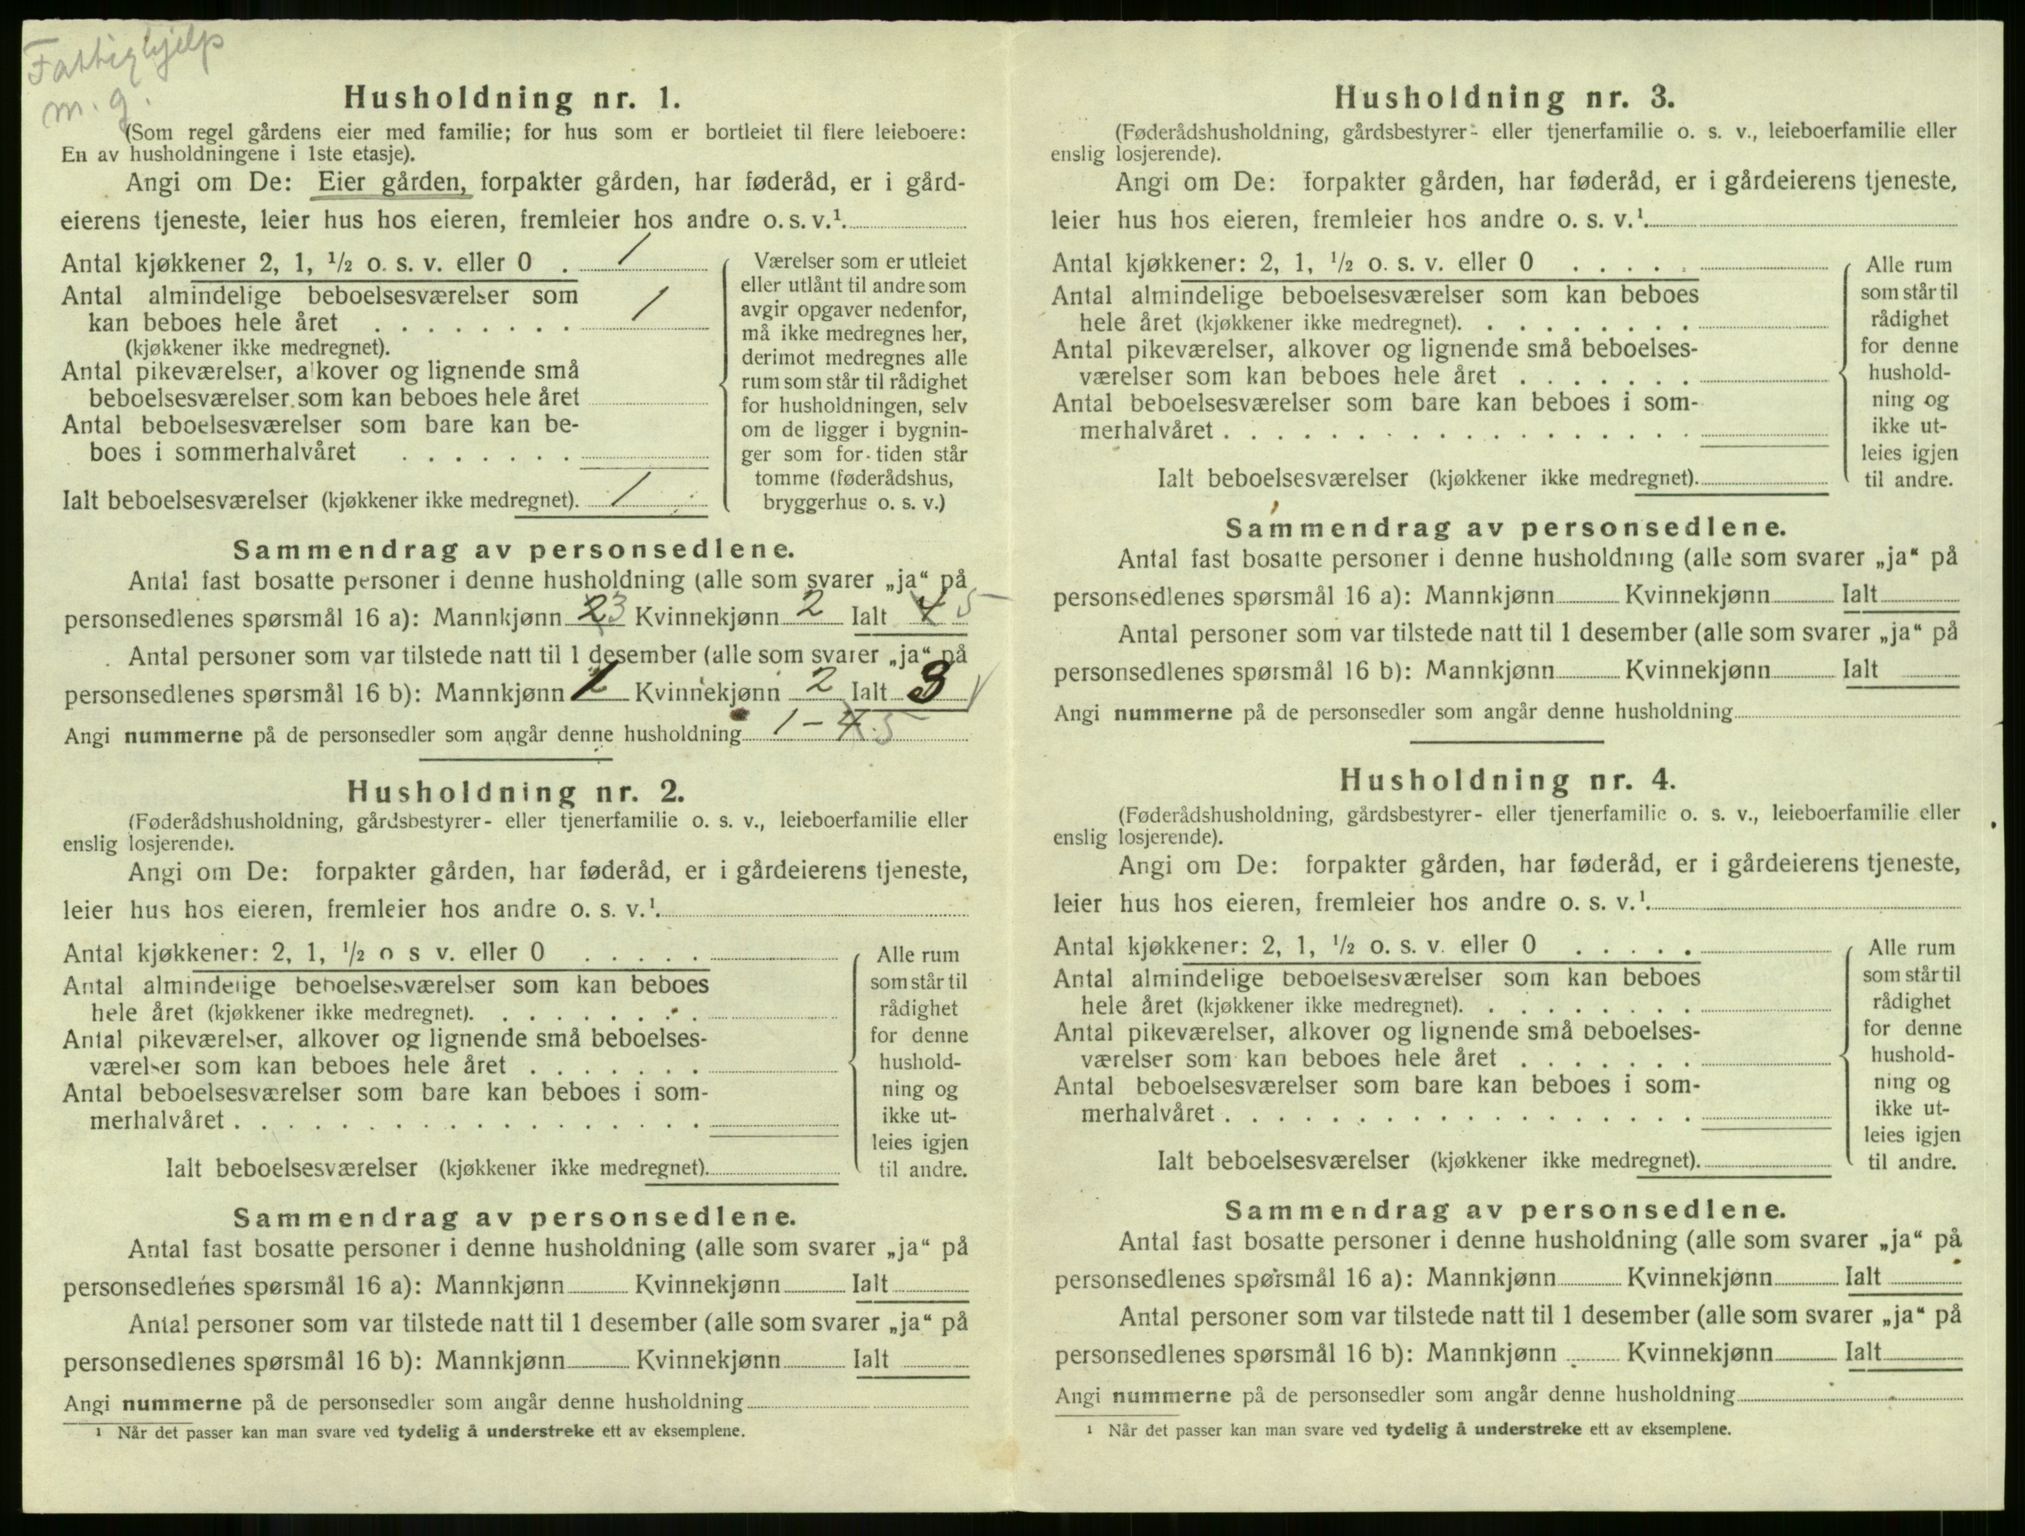 Fattighjelp
m. g.
Husholdning nr. 1.
(Som regel gårdens eier med familie; for hus som er bortleiet til flere leieboere:
En av husholdningene i 1ste etasje).
Angi om De: Eier gården, forpakter gården, har føderåd, er i gård-
eierens tjeneste, leier hus hos eieren, fremleier hos andre o. s. v.¹
Antal kjøkkener 2, 1, ½ o. s. v. eller 0 . 1
Antal almindelige beboelsesværelser som
kan beboes hele året . . . . . . . . 1
(kjøkkener ikke medregnet).
Antal pikeværelser, alkover og lignende små
beboelsesværelser som kan beboes hele året
Antal beboelsesværelser som bare kan be-
boes i sommerhalvåret . . . . . . .
Ialt beboelsesværelser (kjøkkener ikke medregnet). 1
Værelser som er utleiet
eller utlånt til andre som
avgir opgaver nedenfor,
må ikke medregnes her,
derimot medregnes alle
rum som står til rådighet
for husholdningen, selv
om de ligger i bygnin-
ger som for tiden står
tomme (føderådshus,
bryggerhus o. s. v.)
Sammendrag av personsedlene.
Antal fast bosatte personer i denne husholdning (alle som svarer „ja“ på
personsedlenes spørsmål 16 a): Mannkjønn 2 3 Kvinnekjønn 2 Ialt 4 5
Antal personer som var tilstede natt til 1 desember (alle som svarer „ja“ på
personsedlenes spørsmål 16 b): Mannkjønn 1 Kvinnekjønn 2 Ialt 3
Angi nummerne på de personsedler som angår denne husholdning 1 - 4 5
Husholdning nr. 2.
(Føderådshusholdning, gårdsbestyrer- eller tjenerfamilie o. s. v., leieboerfamilie eller
enslig losjerende).
Angi om De: forpakter gården, har føderåd, er i gårdeierens tjeneste,
leier hus hos eieren, fremleier hos andre o. s. v.¹
Antal kjøkkener: 2, 1, ½ o s v. eller 0 . . . . .
Antal almindelige beboelsesværelser som kan beboes
hele året (kjøkkener ikke medregnet). . . . . . . . .
Antal pikeværelser, alkover og lignende små beboelses-
værelser som kan beboes hele året . . . . . . .
Antal beboelsesværelser som bare kan beboes i som-
merhalvåret . . . . . . . . . . . . . . . . . .
Ialt beboelsesværelser (kjøkkener ikke medregnet).
Alle rum
som står til
rådighet
for denne
hushold-
ning og
ikke ut-
leies igjen
til andre.
Sammendrag av personsedlene.
Antal fast bosatte personer i denne husholdning (alle som svarer „ja“ på
personsedlenes spørsmål 16 a): Mannkjønn Kvinnekjønn Ialt
Antal personer som var tilstede natt til 1 desember (alle som svarer „ja“ på
personsedlenes spørsmål 16 b): Mannkjønn Kvinnekjønn Ialt
Angi nummerne på de personsedler som angår denne husholdning
¹ Når det passer kan man svare ved tydelig å understreke ett av eksemplene.
Husholdning nr. 3.
(Føderådshusholdning, gårdsbestyrer- eller tjenerfamilie o. s. v., leieboerfamilie eller
enslig losjerende).
Angi om De: forpakter gården, har føderåd, er i gårdeierens tjeneste,
leier hus hos eieren, fremleier hos andre o. s. v.¹
Antal kjøkkener: 2, 1, ½ o. s. v. eller 0 . . . . .
Antal almindelige beboelsesværelser som kan beboes
hele året (kjøkkener ikke medregnet). . . . . . . . .
Antal pikeværelser, alkover og lignende små beboelses-
værelser som kan beboes hele året . . . . . . .
Antal beboelsesværelser som bare kan beboes i som-
merhalvåret . . . . . . . . . . . . . . . . . .
Ialt beboelsesværelser (kjøkkener ikke medregnet).
Alle rum
som står til
rådighet
for denne
hushold-
ning og
ikke ut-
leies igjen
til andre.
Sammendrag av personsedlene.
Antal fast bosatte personer i denne husholdning (alle som svarer „ja“ på
personsedlenes spørsmål 16 a): Mannkjønn Kvinnekjønn Ialt
Antal personer som var tilstede natt til 1 desember (alle som svarer „ja“ på
personsedlenes spørsmål 16 b): Mannkjønn Kvinnekjønn Ialt
Angi nummerne på de personsedler som angår denne husholdning
Husholdning nr. 4.
(Føderådshusholdning, gårdsbestyrer- eller tjenerfamilie o. s. v., leieboerfamilie eller
enslig losjerende).
Angi om De: forpakter gården, har føderåd, er i gårdeierens tjeneste,
leier hus hos eieren, fremleier hos andre o. s. v.¹
Antal kjøkkener: 2, 1, ½ o. s. v. eller 0 . . . . .
Antal almindelige beboelsesværelser som kan beboes
hele året (kjøkkener ikke medregnet). . . . . . . . .
Antal pikeværelser, alkover og lignende små beboelses-
værelser som kan beboes hele året . . . . . . .
Antal beboelsesværelser som bare kan beboes i som-
merhalvåret . . . . . . . . . . . . . . . . . .
Ialt beboelsesværelser (kjøkkener ikke medregnet).
Alle rum
som står til
rådighet
for denne
hushold-
ning og
ikke ut-
leies igjen
til andre.
Sammendrag av personsedlene.
Antal fast bosatte personer i denne husholdning (alle som svarer „ja“ på
personsedlenes spørsmål 16 a): Mannkjønn Kvinnekjønn Ialt
Antal personer som var tilstede natt til 1 desember (alle som svarer „ja“ på
personsedlenes spørsmål 16 b): Mannkjønn Kvinnekjønn Ialt
Angi nummerne på de personsedler som angår denne husholdning
¹ Når det passer kan man svare ved tydelig å understreke ett av eksemplene.